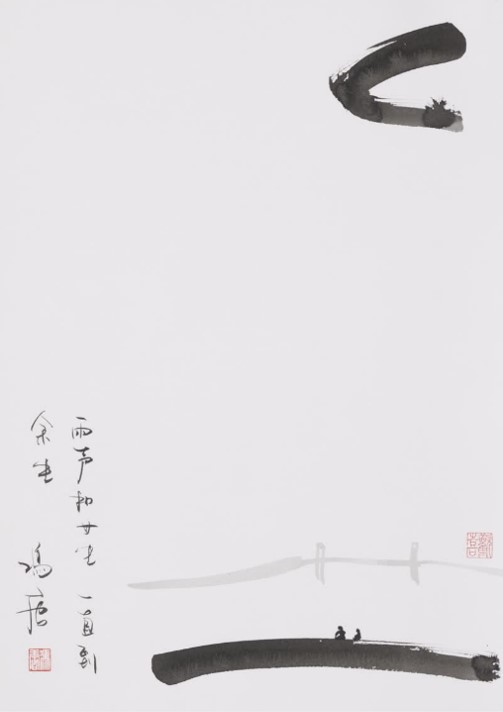 雨声和女生 一直到
余生 冯唐